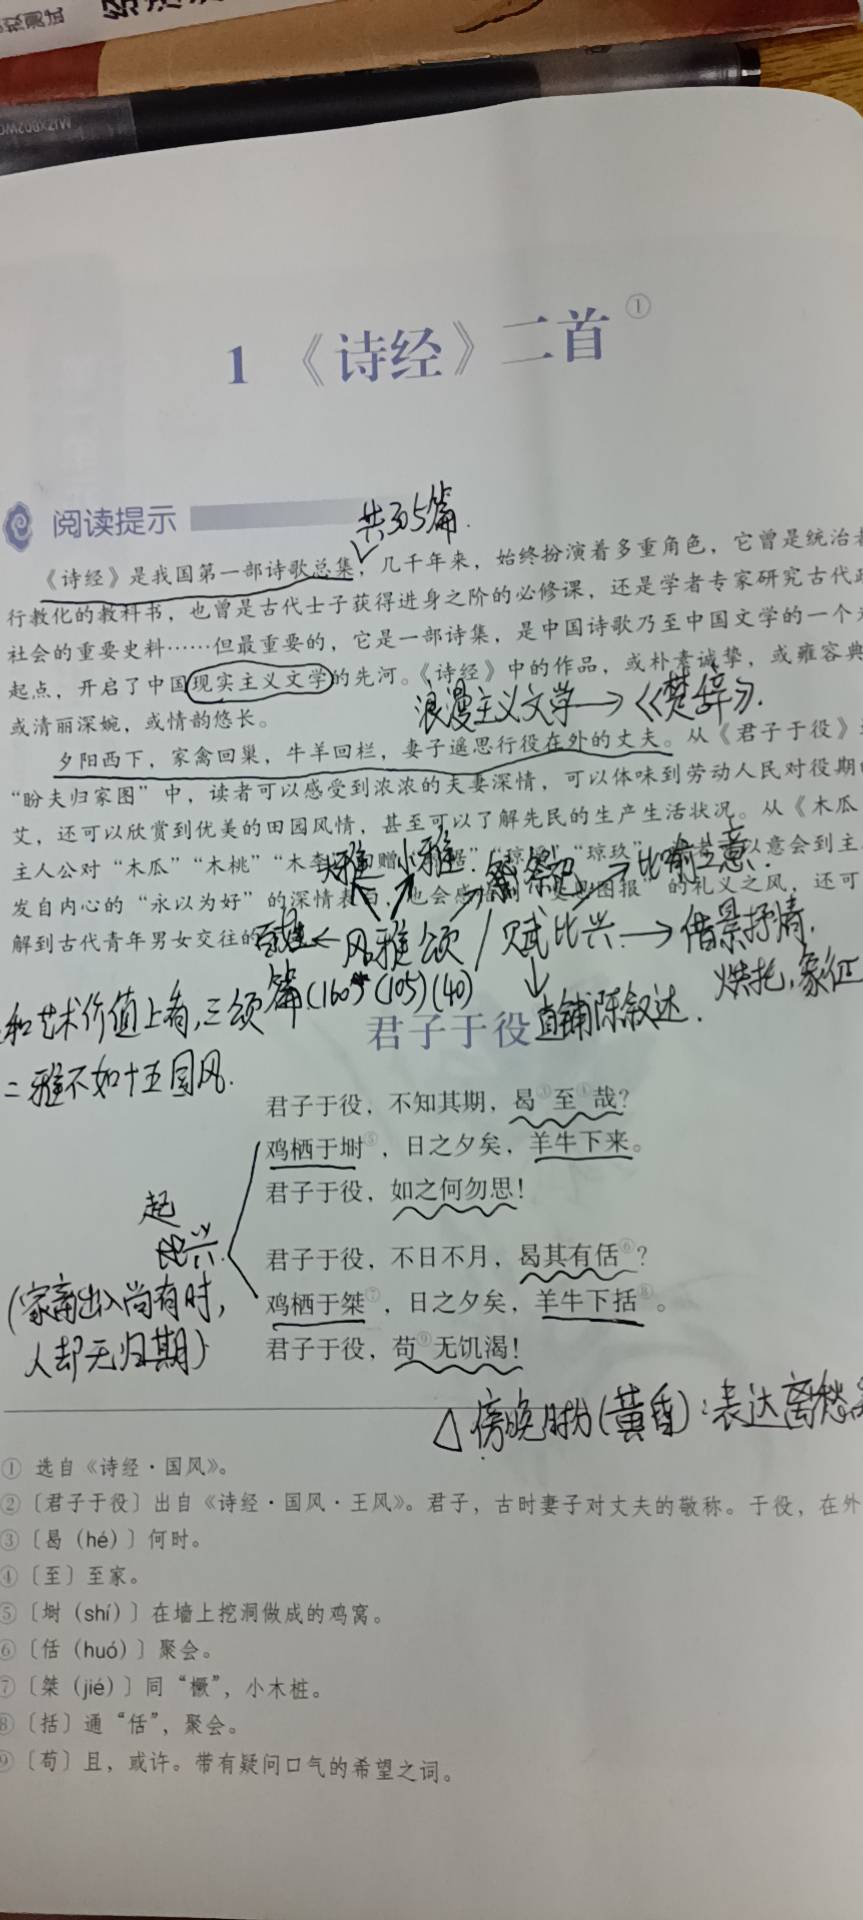 1 《诗经》二首①
阅读提示
共305篇.
《诗经》是我国第一部诗歌总集，几千年来，始终扮演着多重角色，它曾是统治
行教化的教科书，也曾是古代士子获得进身之阶的必修课，还是学者专家研究古代
社会的重要史料……但最重要的，它是一部诗集，是中国诗歌乃至中国文学的一个
起点，开启了中国现实主义文学的先河。《诗经》中的作品，或朴素诚挚，或雍容典
浪漫主义文学→《楚辞》.
或清丽深婉，或情韵悠长。
夕阳西下，家禽回巢，牛羊回栏，妻子遥思行役在外的丈夫。从《君子于役》
“盼夫归家图”中，读者可以感受到浓浓的夫妻深情，可以体味到劳动人民对役期
艾，还可以欣赏到优美的田园风情，甚至可以了解先民的生产生活状况。从《木瓜
主人公对“木瓜”“木桃”“木李”回赠“琼瑶”“琼玖”以意会到主
大雅 小雅 祭祀 →比喻之意.
发自内心的“永以为好”的深情表白，也会感图报”的礼义之风，还可
解到古代青年男女交往的
← 风雅颂 / 赋比兴. → 借景抒情,
烘托,象征
篇(160)(105)(40)
直铺陈叙述.
和艺术价值上看,三颂
二雅不如十五国风.
君子于役
君子于役，不知其期，曷③至④哉？
鸡栖于埘⑤，日之夕矣，羊牛下来。
君子于役，如之何勿思！
起
比兴.
君子于役，不日不月，曷其有佸⑥？
(家畜出入尚有时,
人却无归期)
鸡栖于桀⑦，日之夕矣，羊牛下括⑧。
君子于役，苟⑨无饥渴！
△ 傍晚时分(黄昏):表达离愁
① 选自《诗经·国风》。
②〔君子于役〕出自《诗经·国风·王风》。君子，古时妻子对丈夫的敬称。于役，在外
③〔曷（hé）〕何时。
④〔至〕至家。
⑤〔埘（shí）〕在墙上挖洞做成的鸡窝。
⑥〔佸（huó）〕聚会。
⑦〔桀（jié）〕同“橛”，小木桩。
⑧〔括〕通“佸”，聚会。
⑨〔苟〕且，或许。带有疑问口气的希望之词。